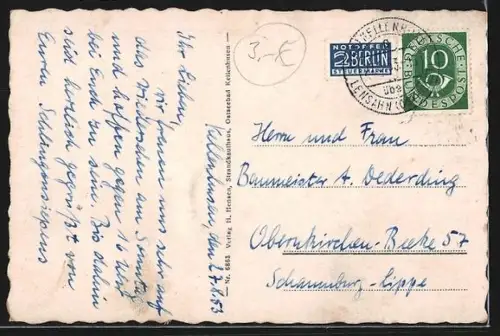 Kellenhusen, den 27.6.53
Ihr Lieben,
wir freuen uns sehr auf
das Wiedersehn am Sonntag
und hoffen gegen 16 Uhr
bei Euch zu sein. Bis dahin
seid herzlich gegrüßt von
Euren
3,-€
NOTOPFER
2 BERLIN
STEUERMARKE
DEUTSCHE
10
BUNDESPOST
KELLENH
über
LENSAHN
Nr. 6863 Verlag H. Strandkaufhaus, Ostseebad Kellenhusen
Herrn und Frau
Baumeister A. Dederding
Obernkirchen-Beeke 57
Schaumburg-Lippe